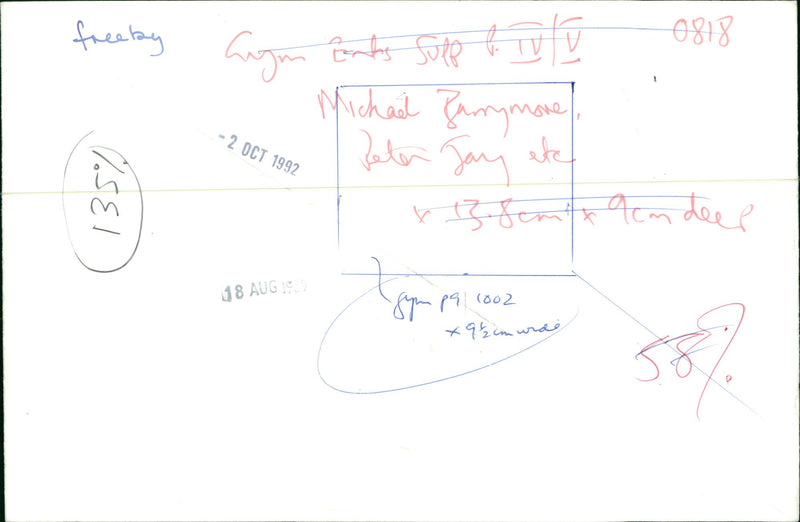 freeby
Gym Ents Supp P. IV/V 0818
Michael Barrymore,
Peter Jay etc
- 2 OCT 1992
135%
x 13.8cm x 9cm deep
18 AUG 1992
gym p9 1002
x 9½cm wide
58%